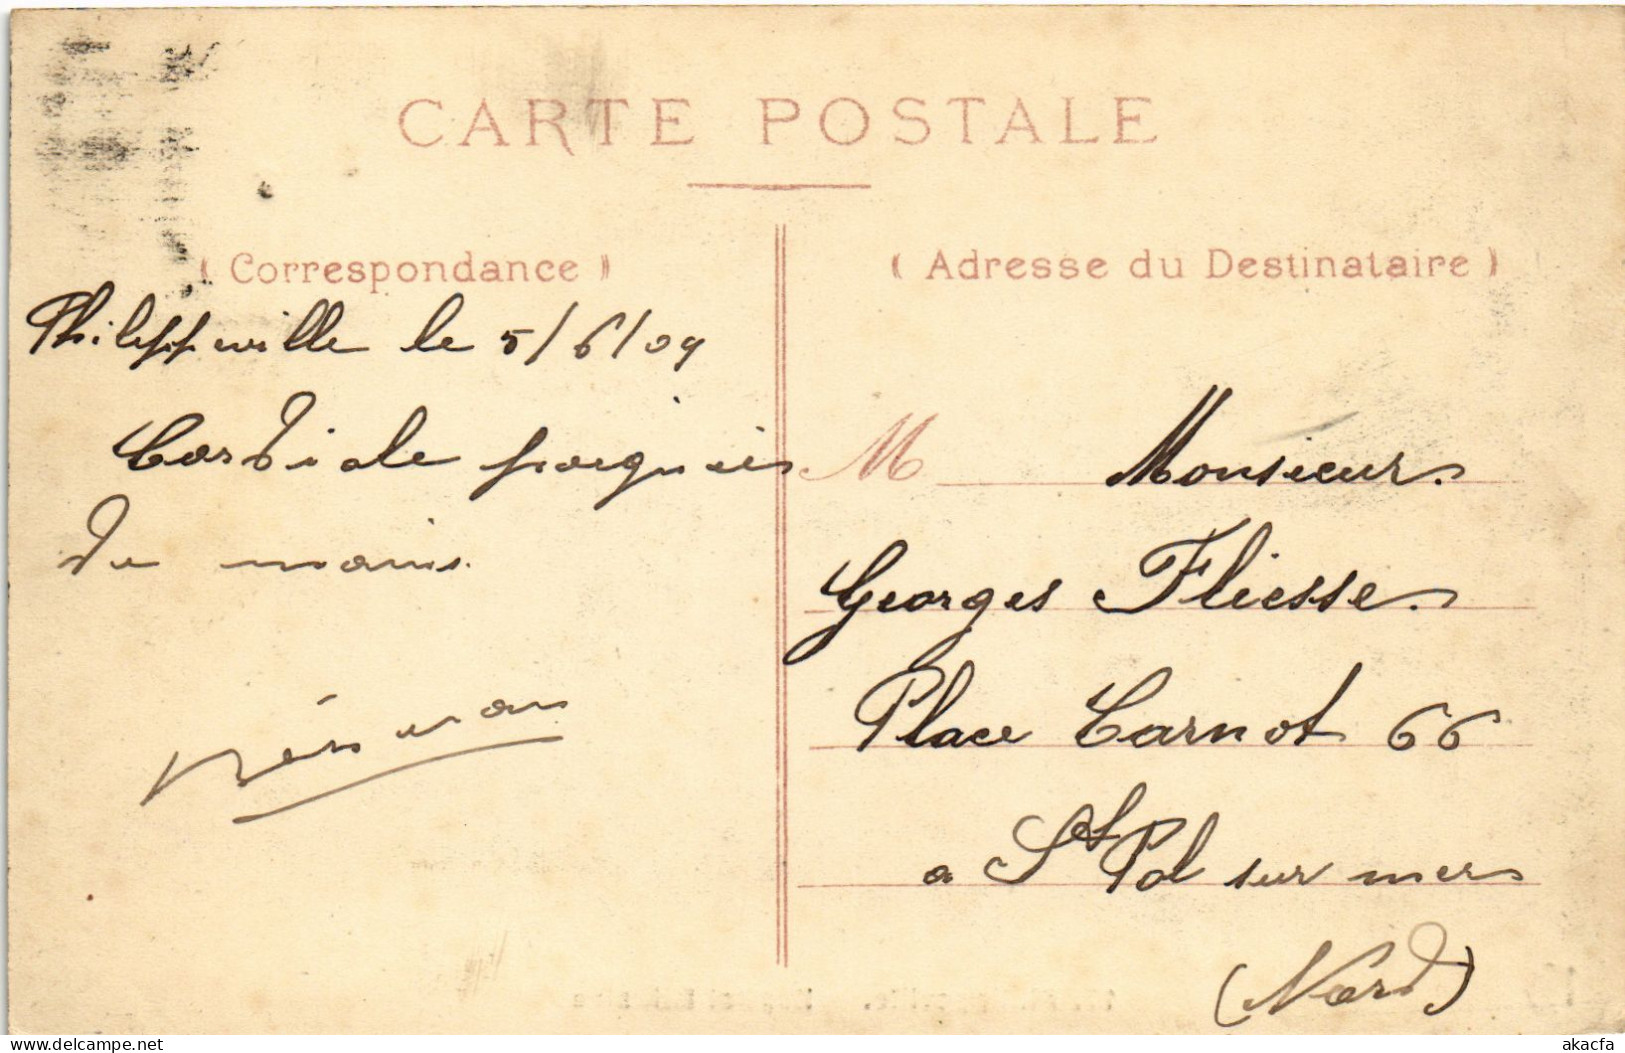 CARTE POSTALE
( Correspondance )
Philippeville le 5/6/09
Cordiale poignées
de mains.
( Adresse du Destinataire )
M Monsieur
Georges Fliesse
Place Carnot 66
a St Pol sur mer
(Nord)
delcampe.net
akacfa